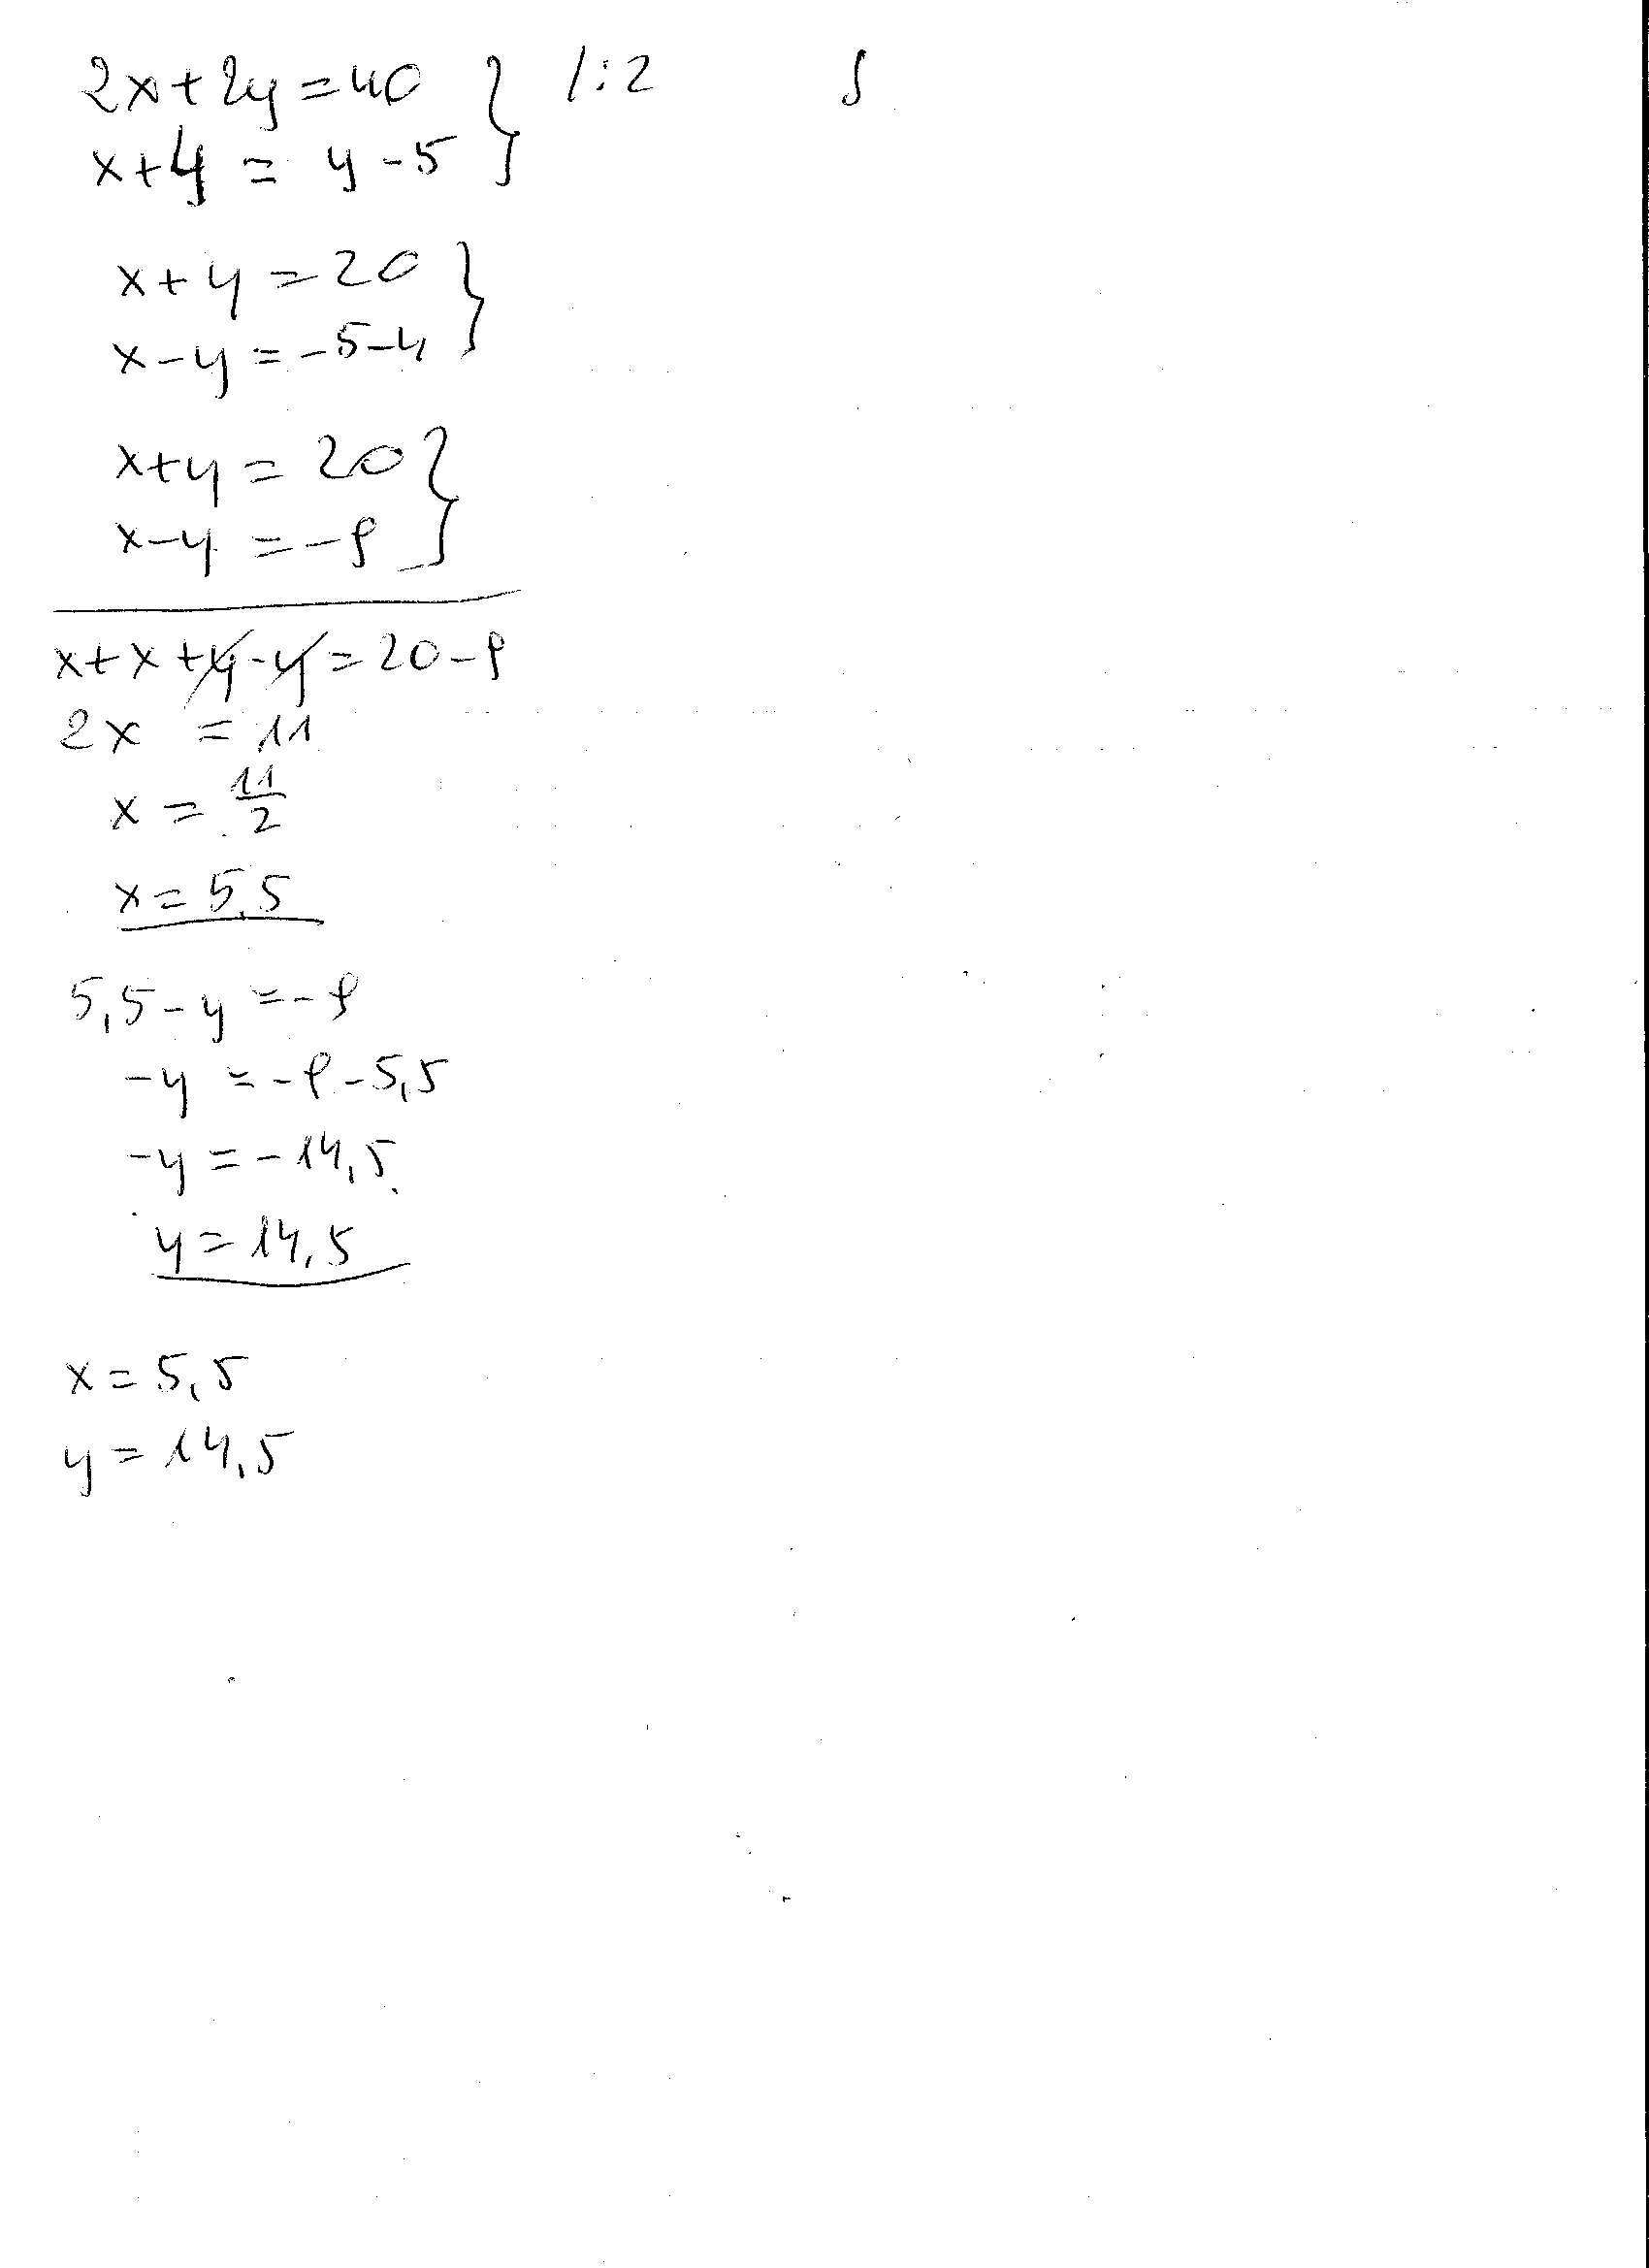 2x+2y=40 } /:2
x+4 = y-5
x+y=20 }
x-y=-5-4
x+y=20 }
x-y=-9
x+x+y-y=20-9
2x =11
x=11/2
x=5,5
5,5-y=-9
-y=-9-5,5
-y=-14,5
y=14,5
x=5,5
y=14,5